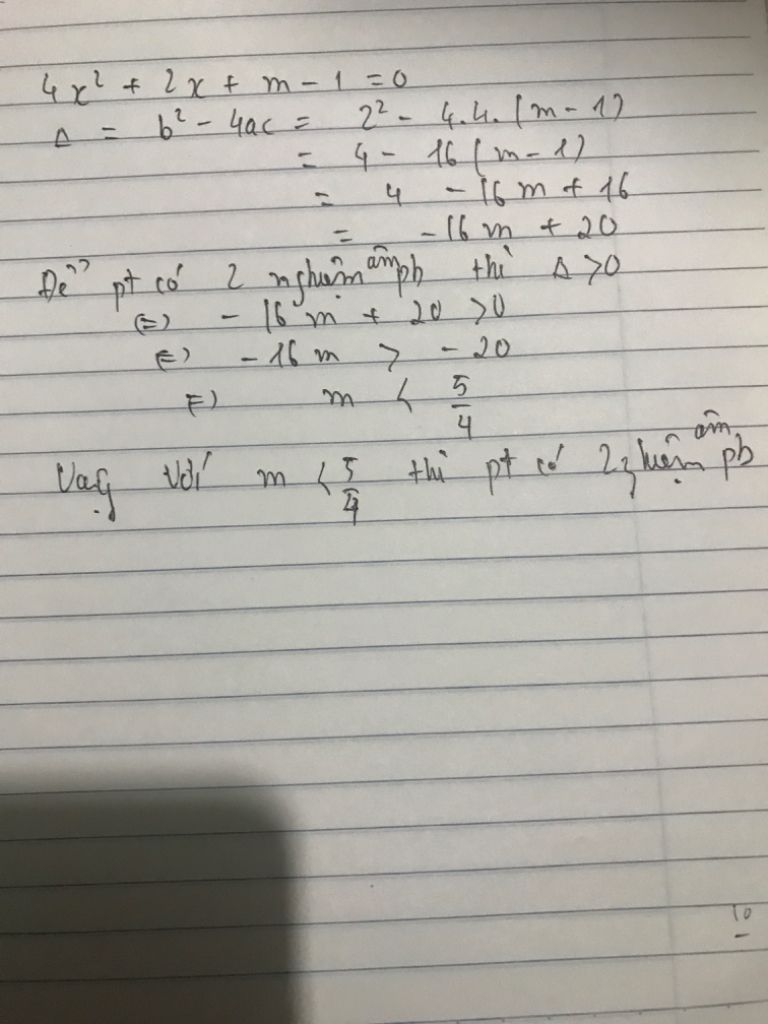 4x² + 2x + m - 1 = 0
Δ = b² - 4ac = 2² - 4.4.(m - 1)
= 4 - 16(m - 1)
= 4 - 16m + 16
= -16m + 20
Để pt có 2 nghiệm âm pb thì Δ > 0
(=) - 16m + 20 > 0
(=) - 16m > - 20
(=) m < 5/4
Vậy với m < 5/4 thì pt có 2 nghiệm âm pb
10